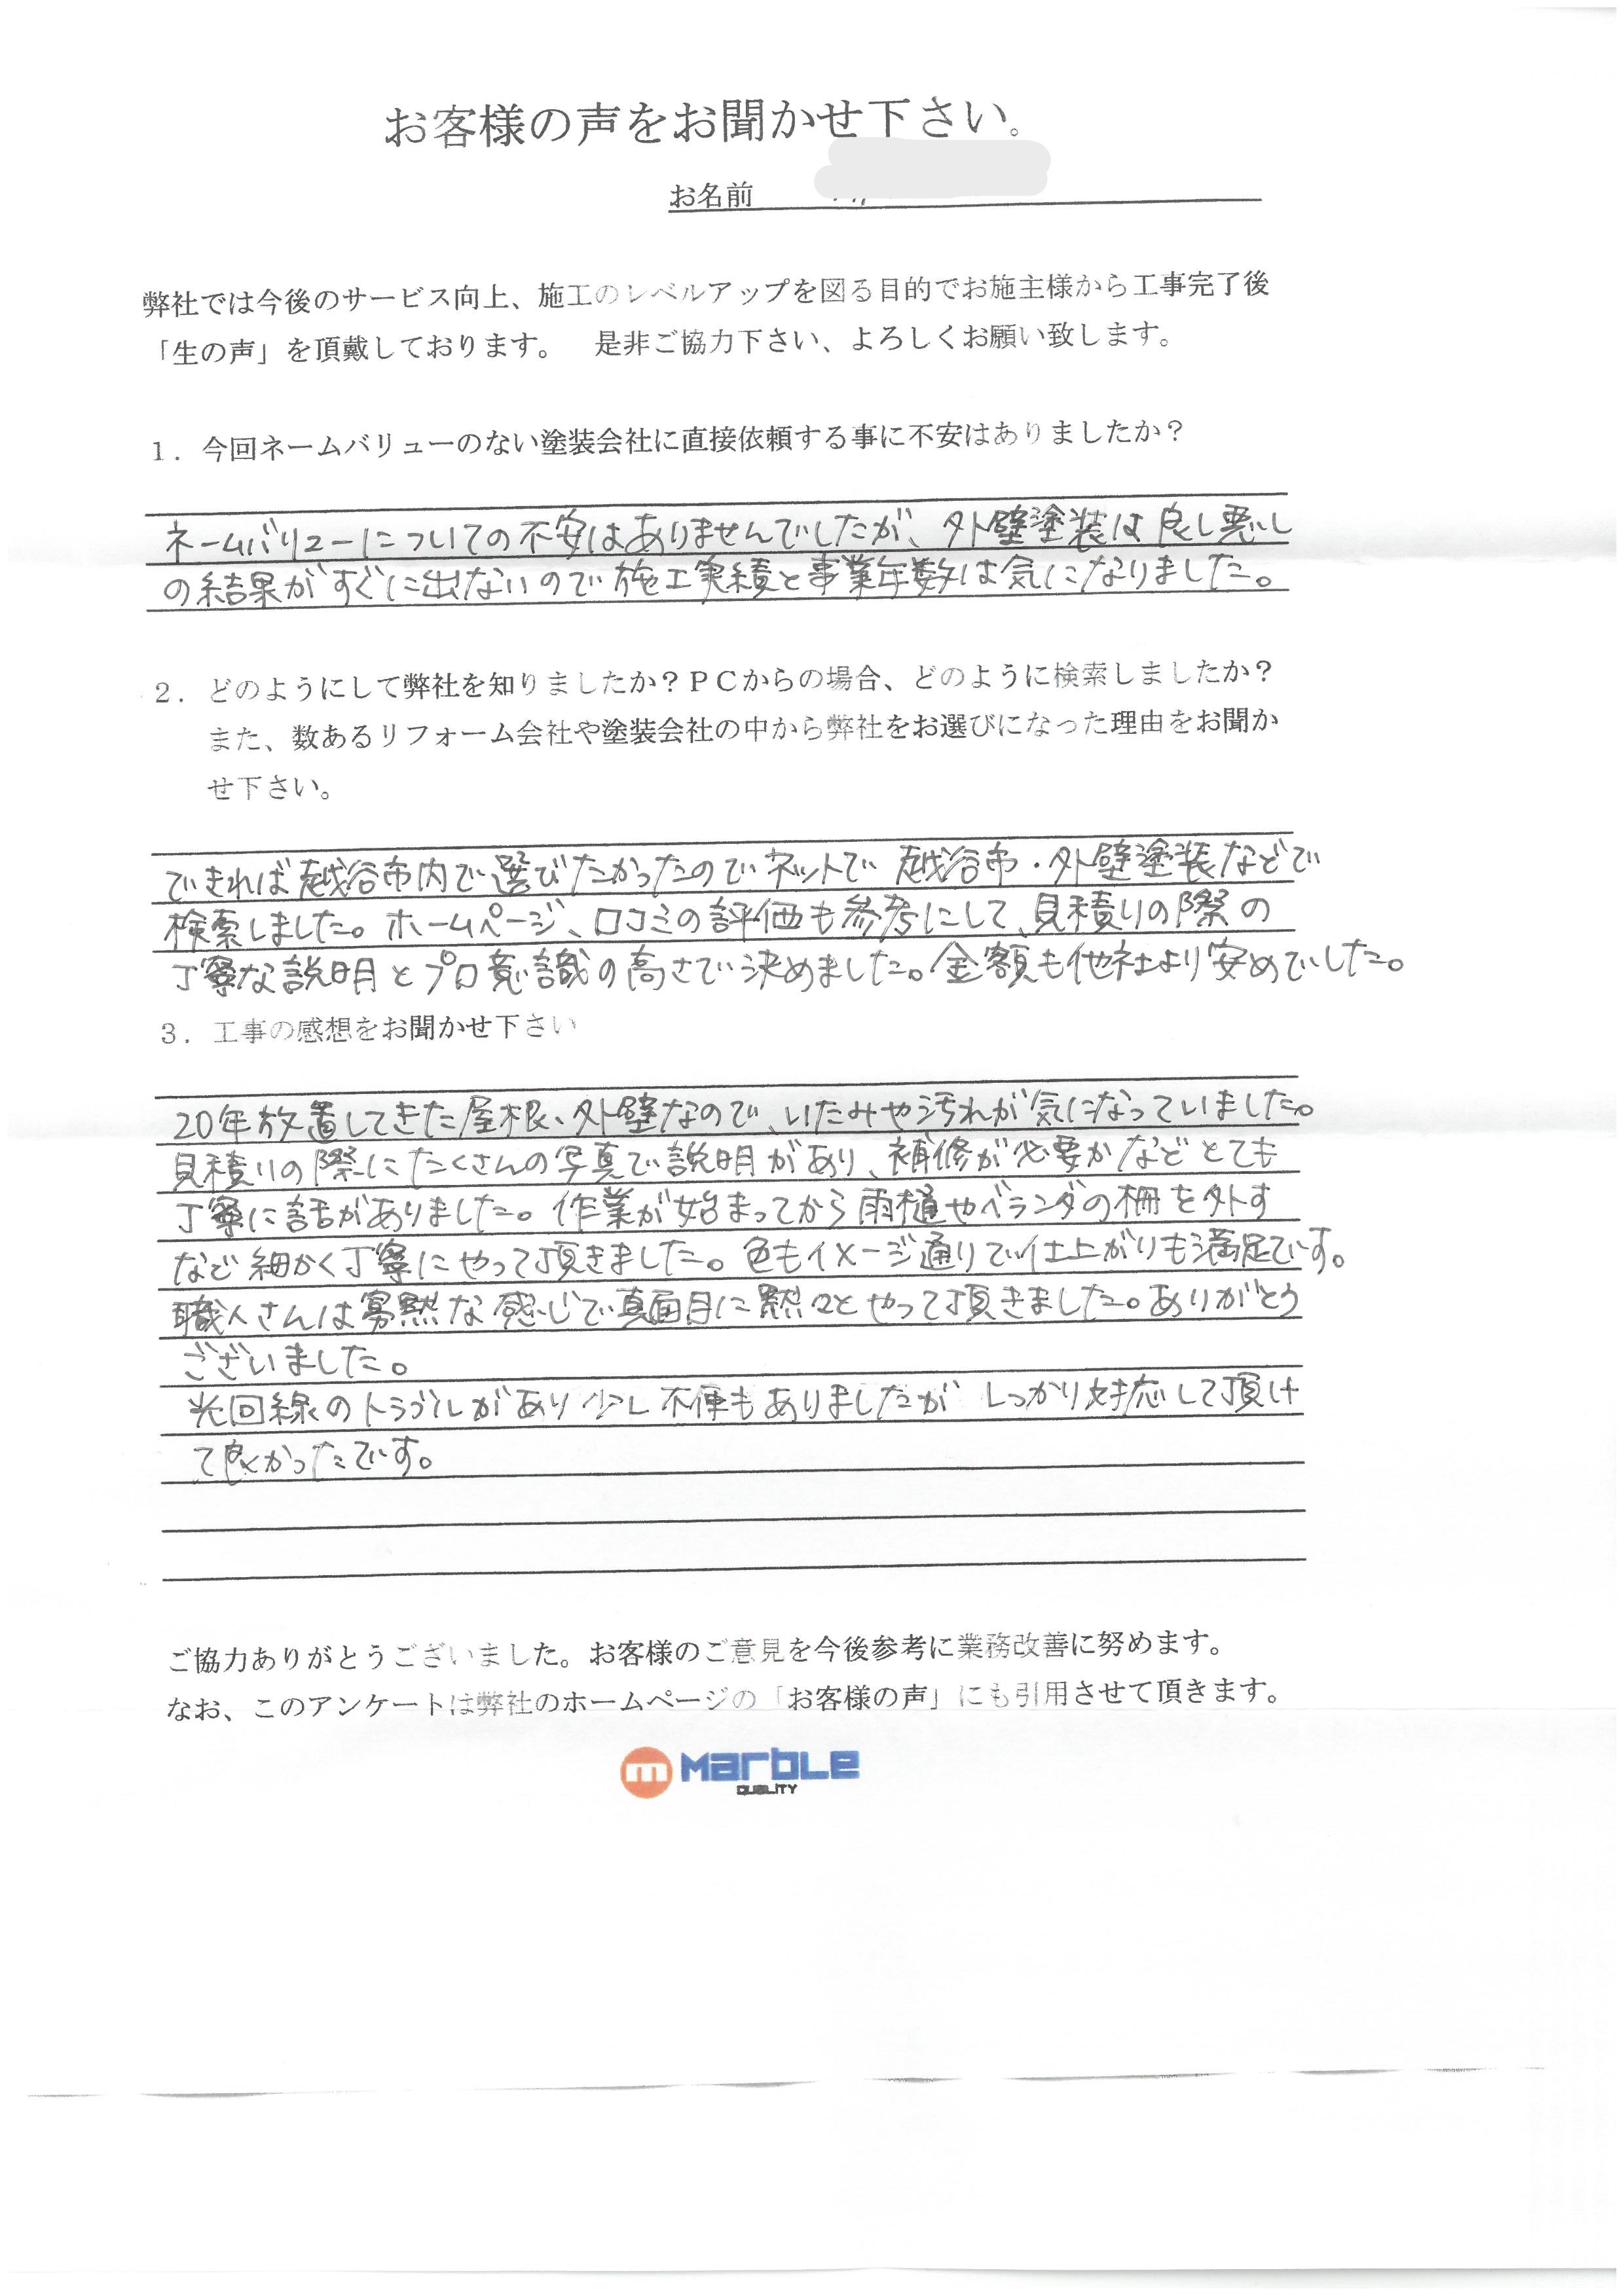 お客様の声をお聞かせ下さい。
お名前
弊社では今後のサービス向上、施工のレベルアップを図る目的でお施主様から工事完了後
「生の声」を頂戴しております。　是非ご協力下さい、よろしくお願い致します。
１．今回ネームバリューのない塗装会社に直接依頼する事に不安はありましたか？
ネームバリューについての不安はありませんでしたが、外壁塗装は良し悪し
の結果がすぐに出ないので施工実績と事業年数は気になりました。
２．どのようにして弊社を知りましたか？ＰＣからの場合、どのように検索しましたか？
また、数あるリフォーム会社や塗装会社の中から弊社をお選びになった理由をお聞か
せ下さい。
できれば越谷市内で選びたかったのでネットで越谷市・外壁塗装などで
検索しました。ホームページ、口コミの評価も参考にして、見積りの際の
丁寧な説明とプロ意識の高さで決めました。金額も他社より安めでした。
３．工事の感想をお聞かせ下さい
20年放置してきた屋根、外壁なので、いたみや汚れが気になっていました。
見積りの際にたくさんの写真で説明があり、補修が必要かなどとても
丁寧に話がありました。作業が始まってから雨樋やベランダの柵を外す
など細かく丁寧にやって頂きました。色もイメージ通りで仕上がりも満足です。
職人さんは寡黙な感じで真面目に黙々とやって頂きました。ありがとう
ございました。
光回線のトラブルがあり少し不便もありましたが しっかり対応して頂け
て良かったです。
ご協力ありがとうございました。お客様のご意見を今後参考に業務改善に努めます。
なお、このアンケートは弊社のホームページの「お客様の声」にも引用させて頂きます。
m Marble
QUALITY